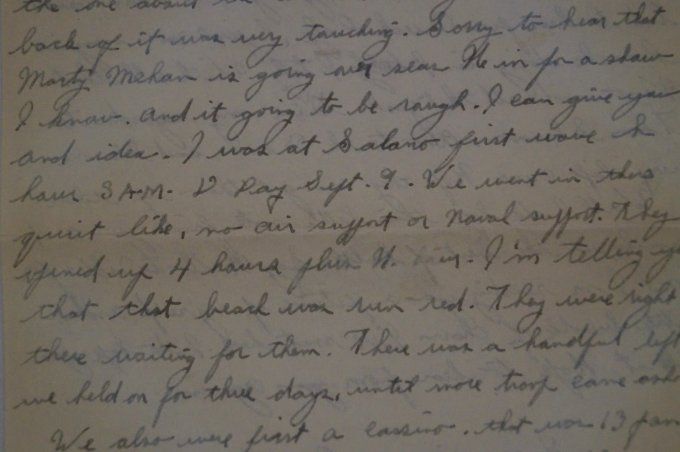 the one about
back of it was very touching. Sorry to hear that
Marty Mehan is going over seas He in for a show
I know. And it going to be rough. I can give you
and idea. I was at Salano first wave H
hour 3 A.M. D Day Sept. 9. We went in there
quiit like, no air support or Naval support. They
opened up 4 hours plus H. I'm telling yo
that that beach was run red. They were right
there waiting for them. There was a handful left
we held on for three days, until more troop came asho
We also were first a cassino. that was 13